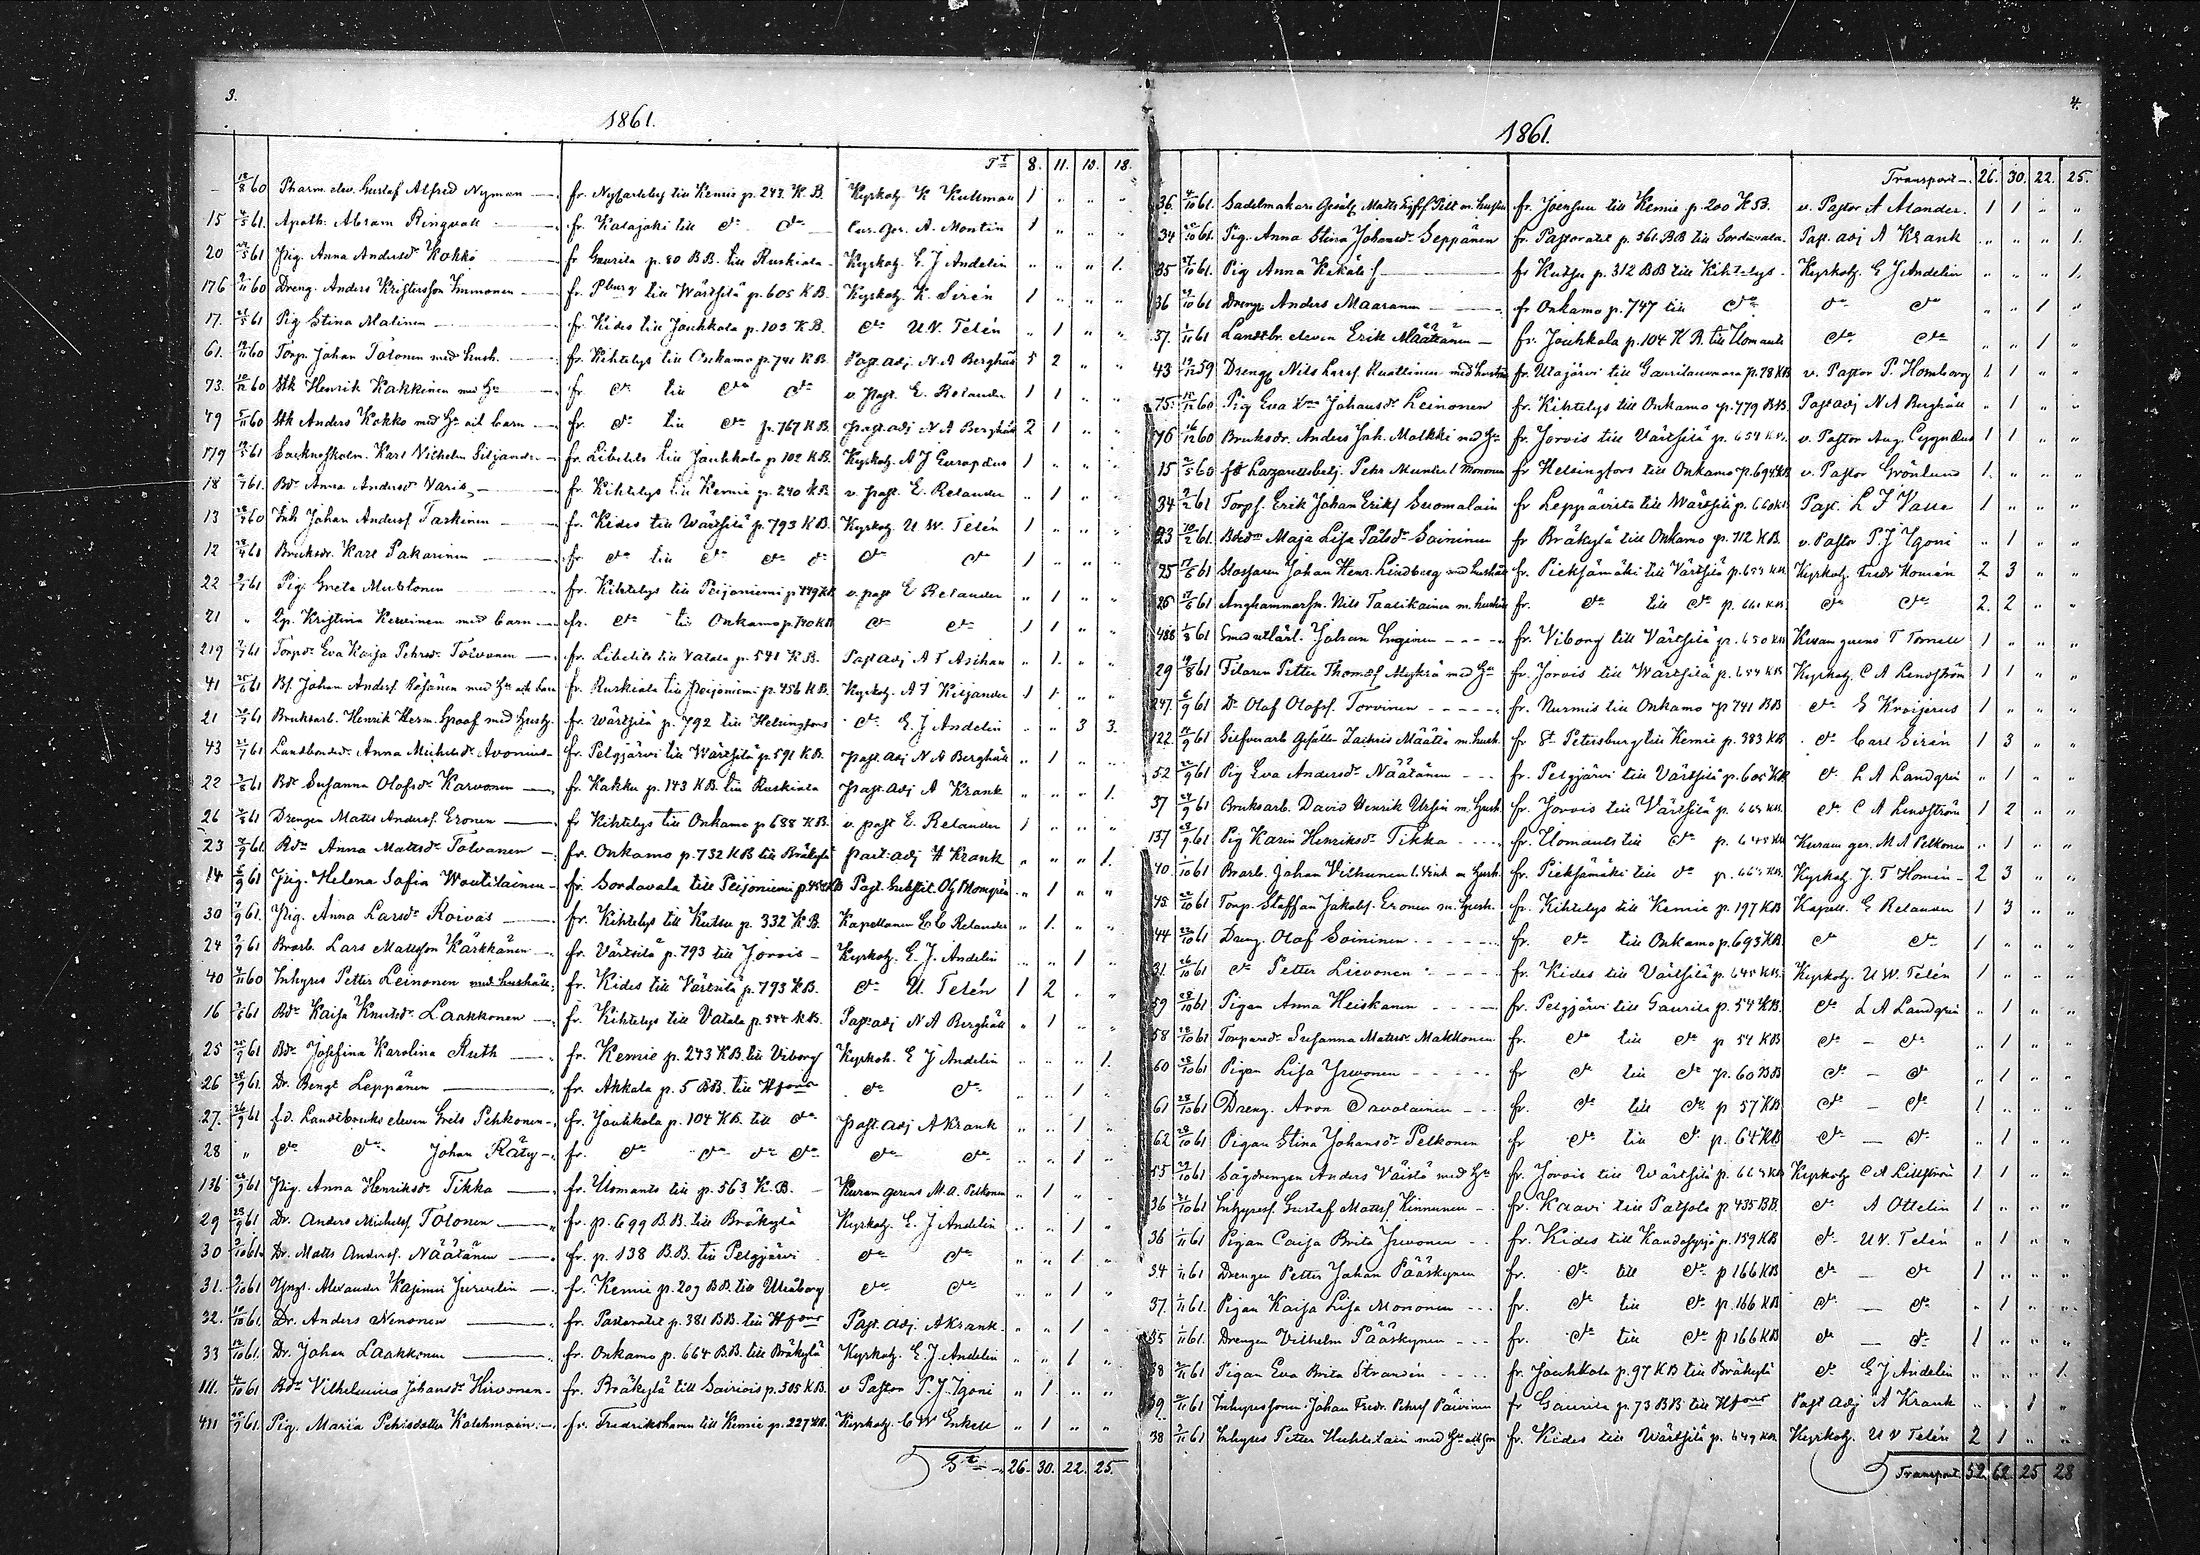 3.
1861.
Tt 8. 11. 13. 18.
60 Pharm. elev. Gustaf Alfred Nyman fr. NyCarleby till Kemie p. 243 K.B. Kyrkoh. K Kullman 1 " " "
15 61. Apoth. Abram Ringvall fr. Kalajoki till do do Cur. ger. A. Montin 1 " " "
20 61 Pig. Anna Andersdr Kokko fr Gaurila p. 80 B.B. till Ruskiala Kyrkoh. E. J Andelin " " " 1.
176 60 Dreng. Anders Kristersson Immonen fr. Pburg till Wärtsilä p. 605 K.B. Kyrkoh. K. Sirén 1 " " "
17. 61 Pig Stina Malinen fr. Kides till Jouhkola p. 103 K.B. do U.W. Telén " 1 " "
61. 60 Torp. Johan Tolonen med hush. fr. Kihtelys till Onkamo p. 741 K.B. Past. adj. N. A Berghäll 5 2 " "
73. 60 Stk Henrik Kakkinen med Hu fr do till do do v. past. E. Relander 1 1 " "
79 60 Stk Anders Kokko med Hu ock barn fr. do till do p. 767 K.B. past. adj N A Berghäll 2 1 " "
179 61 Karl Vilhelm Siljander fr. Libelits till Jouhkola p. 102 K.B. Kyrkoh. A J Europæus 1 " " "
18 61. Bdr Anna Andersdr Varis fr. Kihtelys till Kemie p. 240 K.B. v. past. E. Relander " 1 " "
13 60 Inh Johan Anders. Taskinen fr. Kides till Wärtsilä p. 793 K.B. Kyrkoh. U. W. Telén 1 " " "
12 60 Bruksdr. Karl Pakarinen fr do till do do do do do 1 " " "
22 61 Pig. Greta Mustonen fr. Kihtelys till Peijoniemi p 449 K.B. v. past E Relander " 1 " "
21 " Kristina Kervinen med barn fr. do till Onkamo p. 740 K.B. do do 1 1 " "
219 61 Torpdr Eva Kaisa Pehrsdr Toivonen fr. Libelits till Vatala p. 541 K.B. Past adj A T Asihan " 1. " "
41 61 Bs. Johan Anders. med Hu och barn fr. Ruskiala till Peijoniemi p. 456 K.B. Kyrkoh. A F Kiljander 1 1 " "
21 61 Bruksarb. Henrik Herm. Graaf med hush. fr. Wärtsilä p. 792 till Helsingfors do E. J Andelin " " 3 3.
43 61 Landbondedr. Anna Michelsdr Avonius fr. Pelgjärvi till Wärtsilä p. 591 K.B. past. adj N A Berghäll " 1 " "
22 61 Bdr Susanna Olofsdr Karvonen fr. Kakku p. 143 K.B. till Ruskiala past. adj A Krank " " " 1.
26 61 Drengen Matts Anders. Eronen fr Kihtelys till Onkamo p 688 K.B. v. past E. Relander 1 " " "
23 61. Bdr Anna Mattsdr Tolvanen fr. Onkamo p. 732 K.B till Bräkylä past. adj A Krank " " " 1.
14 61 Pig. Helena Sofia Woutilainen fr. Sordavala till Peijoniemi p. 454 K.B Past. Ol Blomqvist " 1 " "
30 61. Pig. Anna Larsdr Roivas fr. Kihtelys till Kutsu p. 332 K.B. Kapellanen E E Relander " 1. " "
24 61 Brarb. Lars Mattsson Kärkkänen fr. Värtsilä p. 793 till Jorois Kyrkoh. E. J. Andelin " " 1 "
40 60 Inhyres Petter Leinonen med hushåll fr. Kides till Värtsilä p. 793 K.B. do U. Telén 1 2 " "
16 61 Bdr Kaisa Knutsdr Laakkonen fr. Kihtelys till Vatala p. 544 K.B. Past adj N A Berghäll " 1 " "
25 61 Bdr Josefina Karolina Ruth fr. Kemie p. 243 K.B. till Viborg Kyrkoh. E J Andelin " " " 1.
26 61. Dr. Bengt Leppänen fr. Akkala p. 5 B.B. till Hfors do do " " 1 "
27. 61 fd. Landtbruks eleven Pehkonen fr. Jouhkola p. 104 K.B. till do past. adj A Krank " " 1 "
28 " do do Johan Räty fr. do do do do do do " " 1 "
136 61 Pig. Anna Henriksdr Tikka fr. Ilomants till p. 563 K.B. Kuram gerens M. A. Pelkonen " 1 " "
29 61 Dr. Anders Michels. Tolonen fr. p. 699 B.B. till Bräkylä Kyrkoh. E. J Andelin " " 1 "
30 61. Dr. Matts Anders. Näätänen fr. p. 138 B.B. till Pelgjärvi do do " " 1 "
31. 61 Yngl. Alexander Kasimir Jurvelin fr. Kemie p. 209 B.B. till Uleåborg do do " " 1 "
32. 61. Dr. Anders Nenonen fr. Pastoratet p. 381 B.B. till Hfors Past. adj. A Krank " " 1 "
33 61. Dr. Johan Laakkonen fr. Onkamo p. 664 B.B. till Bräkylä Kyrkoh. E. J Andelin " " 1 "
111. 61 Bdr Vilhelmina Johansdr Hirvonen fr. Bräkylä till p. 505 K.B. v Pastor P. J. Igoni " 1 " "
411 61. Pig. Maria Petersdotter Kolehmain fr. Fredrikshamn till Kemie p. 227 K.B. Kyrkoh. C W Enkell " 1 " "
26. 30. 22. 25.
4.
1861.
Transport 26. 30. 22. 25.
36. 61. Sadelmakare Gesäll Matts fr. Joensuu till Kemie p. 200 K.B. v. Pastor A Alander. 1 1 " "
34 61. Pig. Anna Stina Johansdr Seppänen fr. Pastoratet p. 561. B.B till Sordavala Past. adj A Krank " " " 1.
35 61. Pig Anna fr Kutsu p. 312 B.B till Kihtelys Kyrkoh. E J Andelin " " " 1.
36 61 Dreng. Anders Maaranen fr Onkamo p. 747 till do do do " " 1 "
37. 61 Landtbr. eleven Erik Määttänen fr. Jouhkola p. 104 K.B. till Ilomants do do " " 1 "
43 59 Dreng Nils Larss. med hustru fr. Utajärvi till Gaurilanvaara p. 78 K.B v. Pastor P. Homborg 1 1 " "
75. 60 Pig Eva Johansdr Leinonen fr. Kihtelys till Onkamo p. 779 B.B. Past adj N A Berghäll " 1 " "
76 60 Bruksdr. Anders Joh. Malkki med Hu fr. Jorois till Värtsilä p. 654 K.B. v. Pastor Aug. Cygnæus 1 1 " "
15 60 fd Lazarettsbetj. Petr Munter l. Mononen fr Helsingfors till Onkamo p. 694 K.B v. Pastor Grönlund 1. " " "
34 61 Torps. Erik Johan Eriks Suomalain fr Leppävirta till Wärtsilä p. 660 K.B. Past. L F 1 " " "
23 61. Maja Lisa Pålsdr Soininen fr Bräkylä till Onkamo p. 712 K.B. v. Pastor P. J Igoni " 1 " "
95 61 Slossaren Johan Henr. Lindberg med hushåll fr. Pieksämäki till Värtsilä p. 653 K.B Kyrkoh. Fredr Homén 2 3 " "
25 61 Anghammarsm. Nils Taalikainen m. hushåll fr. do till do p. 661 K.B. do do 2. 2 " "
488 61 Smedsutlärl. Johan Inginen fr. Viborg till Värtsilä p. 650 K.B Kuram gerens T 1 " " "
29 61 Filaren Petter Thom.s. Myhrä med Hu fr. Jorois till Wärtsilä p. 654 K.B Kyrkoh. C A Lindström 1 1 " "
247. 61 Dr Olof Olofss. Torvinen fr. Nurmis till Onkamo p 741 B.B do E Kroijerus 1 " " "
122. 61 Silfverarb Gesällen Zachris Määttä m. hush. fr St Petersburg till Kemie p. 383 K.B do Carl Sirén 1 3 " "
52 61 Pig Eva Andersdr Näätänen fr. Pelgjärvi till Värtsilä p. 605 K.B do L A Landgrén " 1 " "
37 61 Bruksarb. David Henrik Ursin m. hush. fr. Jorois till Värtsilä p. 663 K.B. do C A Lindström 1 2 " "
137 61 Pig Karin Henriksdr Tikka fr. Ilomants till do p. 645 K.B Kuram ger. M A Pelkonen " 1 " "
40 61 Brarb. Johan m hush. fr. Pieksämäki till do p. K.B. Kyrkoh. J. F Homén 2 3 " "
45 61 Torp. Staffan Jakobs. Eronen m. hush. fr. Kihtelys till Kemie p. 197 K.B Kapell. E Relander 1 3 " "
44 61 Dreng. Olof Soininen fr. do till Onkamo p. 693 K.B do do 1 " " "
31. 61 do Petter Lievonen fr. Kides till Värtsilä p. 645 K.B. Kyrkoh. U W. Telén 1 " " "
59 61 Pigan Anna Heiskanen fr. Pelgjärvi till Gaurila p. 54 K.B. do L A Landgrén " 1 " "
58 61 Torparedr. Susanna Mattsdr Makkonen fr. do till do p 54 K.B do do " 1 " "
60 61 Pigan Lisa Irwonen fr do till do p. 60 B.B do do " 1 " "
61 61 Dreng. Aron Savolainen fr. do till do p 57 K.B do do 1 " " "
62 61 Pigan Stina Johansdr Pelkonen fr do till do p. 64 K.B do do " 1 " "
55 61 Sågdrengen Anders Väistö med Hu fr. Jorois till Wärtsilä p. 663 K.B Kyrkoh. C A 1 1 " "
36 61 Inhyress. Gustaf Mattss. Kinnunen fr. Kaavi till Patsola p 435 B.B. do A Ottelin 1 " " "
36 61 Pigan Caisa Brita Irvonen fr. Kides till p. 159 K.B do U.W. Telén " 1 " "
34 61 Drengen Petter Johan Pääskynen fr. do till do p 166 K.B do do 1 " " "
37. 61. Pigan Kaisa Lisa Mononen fr. do till do p. 166 K.B do do " 1 " "
35 61. Drengen Vilhelm Pääskynen fr. do till do p 166 K.B do do 1 " " "
38 61 Pigan Eva Brita Strandén fr. Jouhkola p. 97 K.B till Bräkylä do E J Andelin " " " 1.
39 61 Inhyressonen Johan Fredr. Petrs. Päivinen fr Gaurila p. 73 B.B till Hfors Past adj A Krank " " 1 "
38 61 Inhyres Petter Huhtilain med Hu ock son fr. Kides till Wärtsilä p. 649 K.B. Kyrkoh. U W Telén 2 1 " "
Transport 52. 62. 25 28